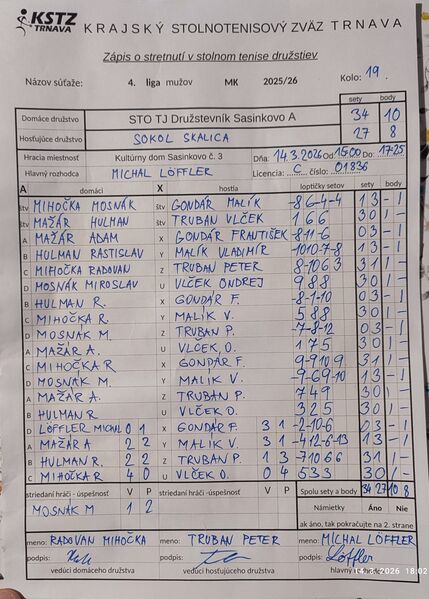 KSTZ
TRNAVA
KRAJSKÝ STOLNOTENISOVÝ ZVÄZ TRNAVA
Zápis o stretnutí v stolnom tenise družstiev
Názov súťaže: 4. liga mužov MK 2025/26 Kolo: 19.
sety body
Domáce družstvo STO TJ Družstevník Sasinkovo A 34 10
Hosťujúce družstvo SOKOL SKALICA 27 8
Hracia miestnosť Kultúrny dom Sasinkovo č. 3 Dňa: 14.3.2026 od 15:00 Do: 17:25
Hlavný rozhodca MICHAL LÖFFLER Licencia:...C číslo: 01836
A domáci X hostia loptičky setov sety body
štv MIHOČKA MOSNÁK štv GONDÁR MALÍK -8 6-4-4 13 - 1
štv MAŽÁR HULMAN štv TRUBAN VLČEK 1 6 6 30 1 -
A MAŽÁR ADAM X GONDÁR FRANTIŠEK -8-11-6 03 - 1
B HULMAN RASTISLAV Y MALÍK VLADIMÍR -1010-7-8 13 - 1
C MIHOČKA RADOVAN Z TRUBAN PETER -81063 31 1 -
D MOSNÁK MIROSLAV U VLČEK ONDREJ 988 30 1 -
B HULMAN R. X GONDÁR F. -8-1-10 03 - 1
C MIHOČKA R. Y MALÍK V. 588 30 1 -
D MOSNÁK M. Z TRUBAN P. -7-8-12 03 - 1
A MAŽÁR A. U VLČEK O. 175 30 1 -
C MIHOČKA R X GONDÁR F. -9-9109 31 1 -
D MOSNÁK M. Y MALÍK V. -9-69-10 13 - 1
A MAŽÁR A. Z TRUBAN P. 749 30 1 -
B HULMAN R U VLČEK O. 325 30 1 -
D LÖFFLER MICHAL 0 1 X GONDÁR F. 3 1 -2-10-6 03 - 1
A MAŽÁR A 2 2 Y MALÍK V. 3 1 -412-6-13 13 - 1
B HULMAN R. 2 2 Z TRUBAN P. 1 3 -71066 31 1 -
C MIHOČKA R 4 0 U VLČEK O. 0 4 533 30 1 -
striedaní hráči - úspešnosť V P striedaní hráči - úspešnosť V P Spolu sety a body 34 27 10 8
MOSNÁK M 1 2 Námietky Áno Nie
ak áno, tak pokračujte na 2. strane
meno: RADOVAN MIHOČKA meno: TRUBAN PETER meno: MICHAL LÖFFLER
podpis: podpis: podpis: Löffler
vedúci domáceho družstva vedúci hosťujúceho družstva hlavný
14.3.2026 18:02